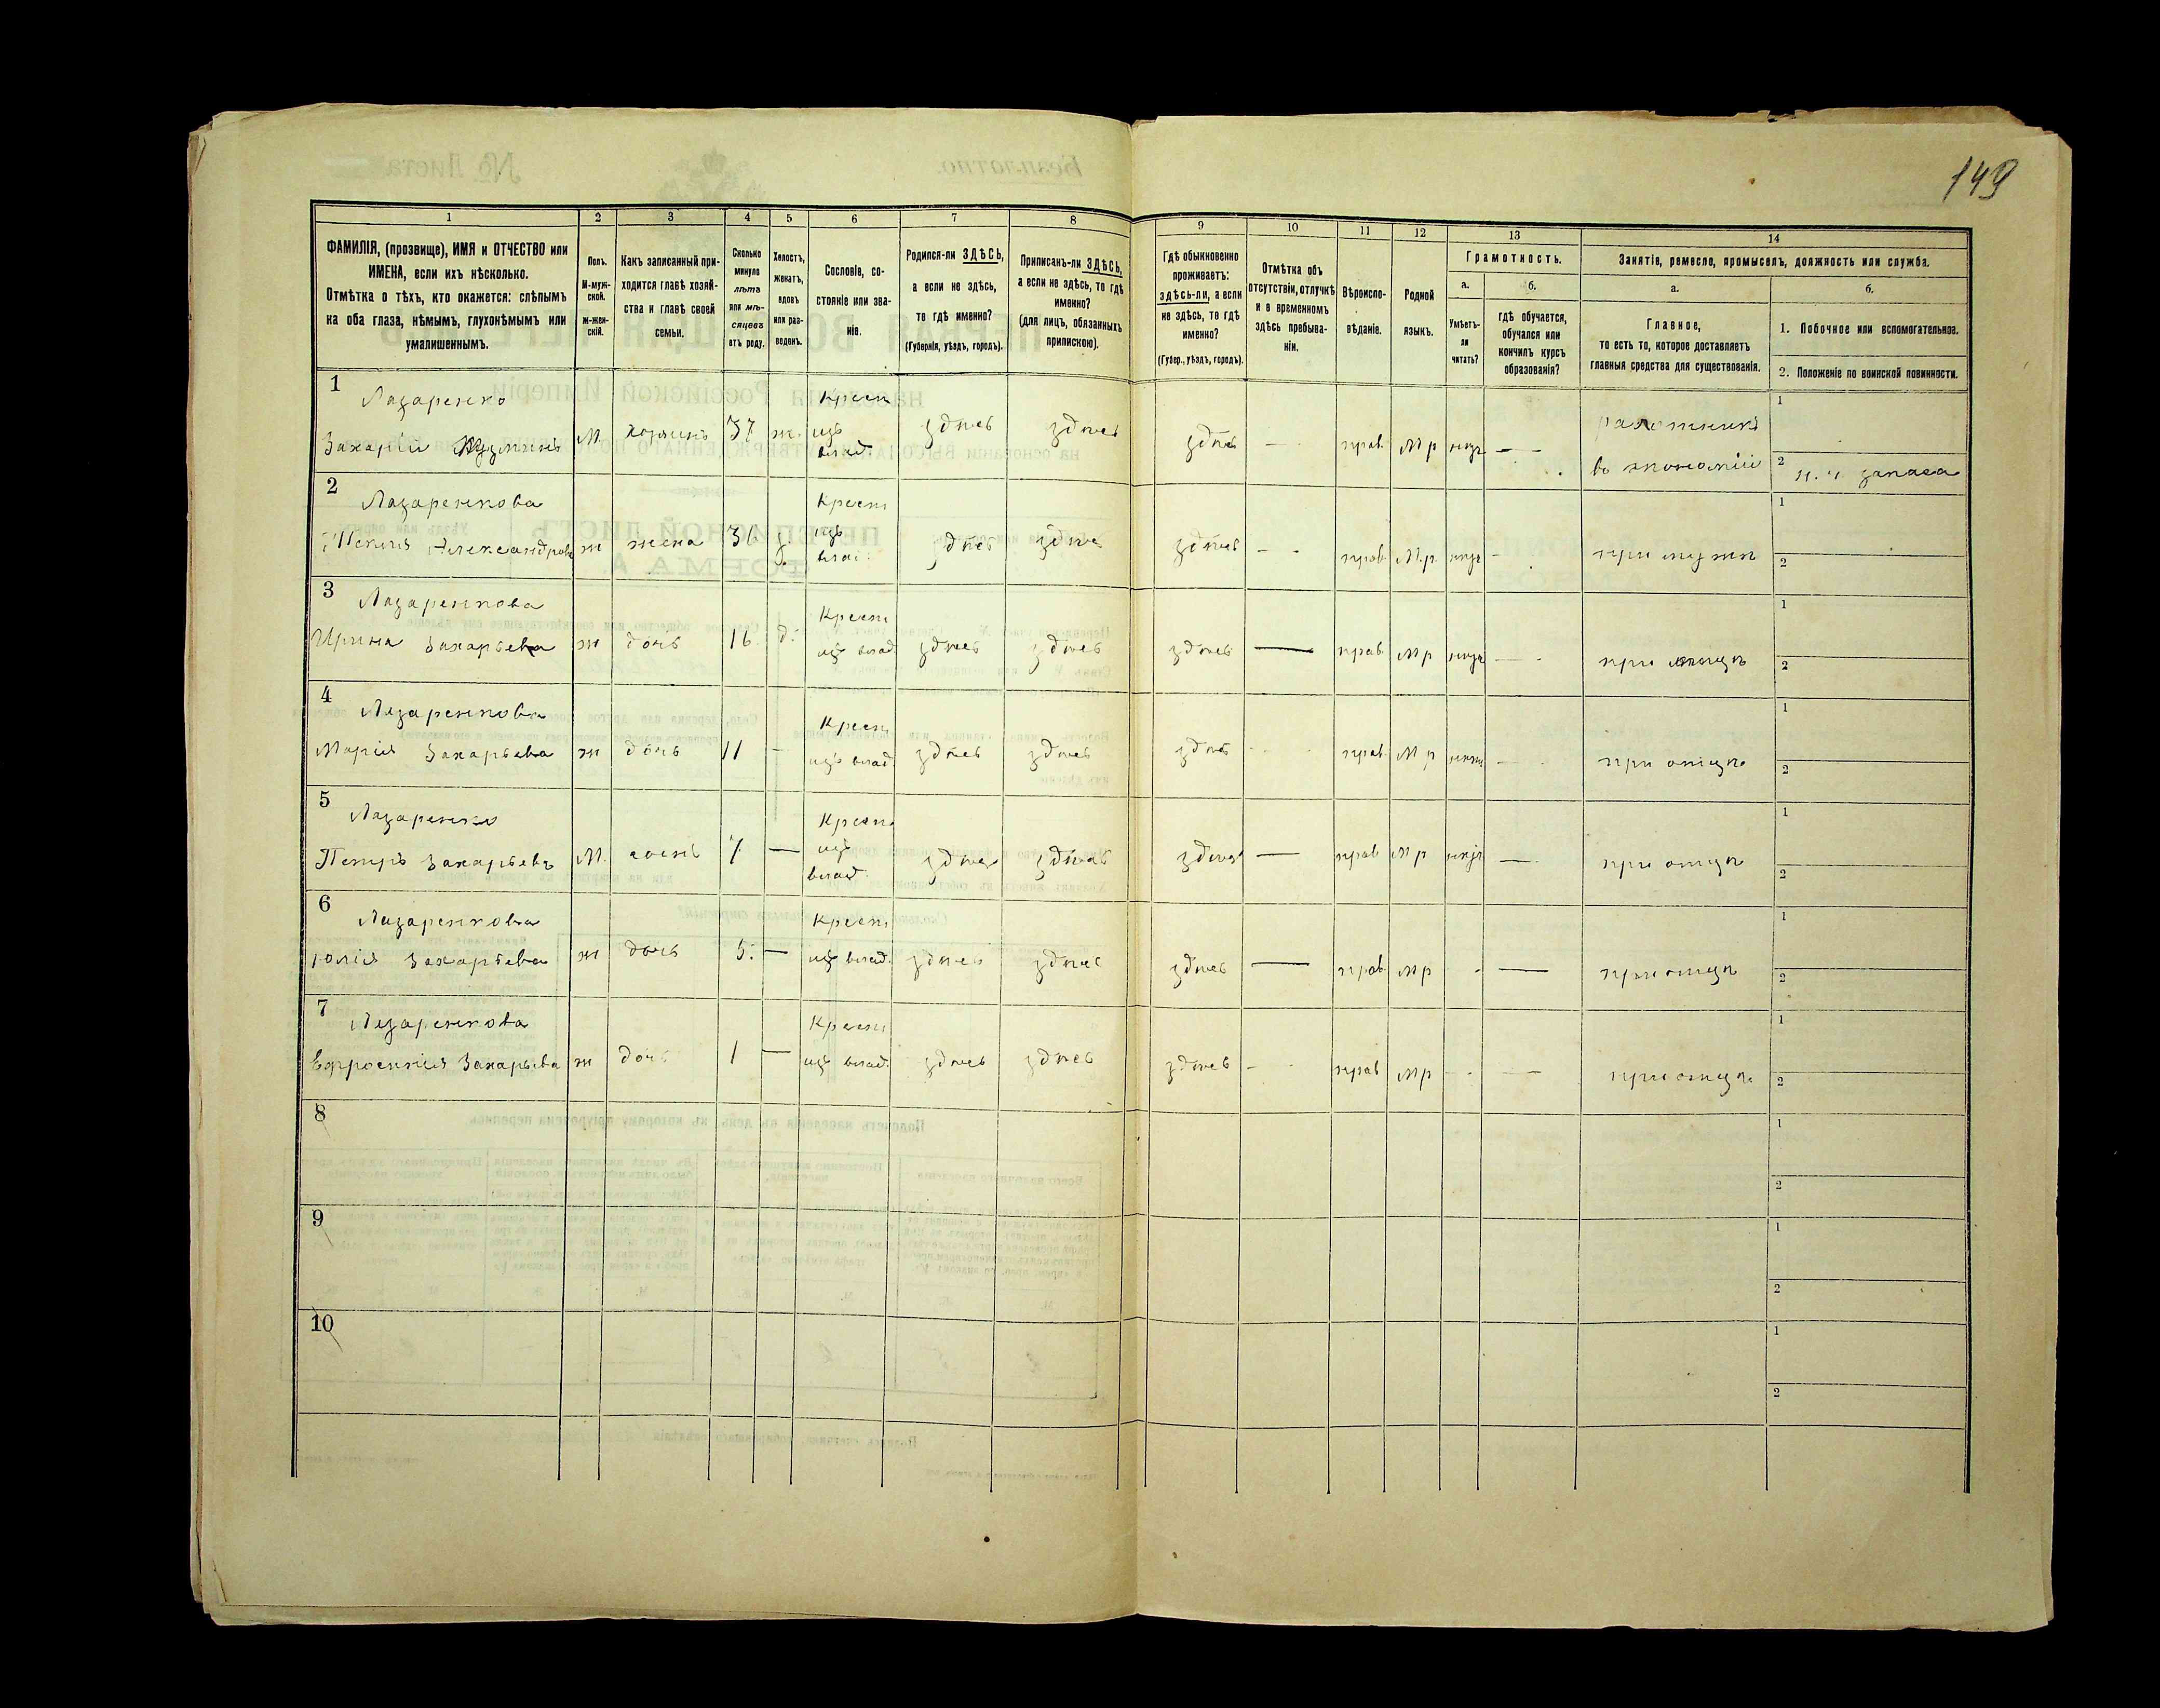 149
1
2
3
4
5
6
7
8
9
10
11
12
13
14
ФАМИЛІЯ, (прозвище), ИМЯ и ОТЧЕСТВО или
ИМЕНА, если ихъ нѣсколько.
Отмѣтка о тѣхъ, кто окажется: слѣпымъ
на оба глаза, нѣмымъ, глухонѣмымъ или
умалишеннымъ.
Полъ.
М-муж-
ской.
ж-жен-
скій.
Какъ записанный при-
ходится главѣ хозяй-
ства и главѣ своей
семьи.
Сколько
минуло
лѣтъ
или мѣ-
сяцевъ
отъ роду.
Холостъ,
женатъ,
вдовъ
или раз-
веденъ.
Сословіе, со-
стояніе или зва-
ніе.
Родился-ли ЗДѢСЬ,
а если не здѣсь,
то гдѣ именно?
(Губернія, уѣздъ, городъ).
Приписанъ-ли ЗДѢСЬ,
а если не здѣсь, то гдѣ
именно?
(для лицъ, обязанныхъ
припискою).
Гдѣ обыкновенно
проживаетъ:
здѣсь-ли, а если
не здѣсь, то гдѣ
именно?
(Губер., уѣздъ, городъ).
Отмѣтка объ
отсутствіи, отлучкѣ
и о временномъ
здѣсь пребыва-
ніи.
Вѣроиспо-
вѣданіе.
Родной
языкъ.
Грамотность.
а.
Умѣетъ-
ли
читать?
б.
гдѣ обучается,
обучался или
кончилъ курсъ
образованія?
Занятіе, ремесло, промыселъ, должность или служба.
а.
Главное,
то есть то, которое доставляетъ
главныя средства для существованія.
б.
1. Побочное или вспомогательное.
2. Положеніе по воинской повинности.
1
Лазаренко
Захарій Кузминъ
М.
хозяинъ
37
ж.
Крест
изъ
влад.
здѣсь
здѣсь
здѣсь
—
прав.
Мр
—
работникъ
въ экономіи
1
2 н. ч запаса
2
Лазаренкова
Александров
ж
жена
36
Крест
изъ
влад.
здѣсь
здѣсь
здѣсь
- -
прав.
М.р.
-
при мужѣ
1
2
3
Лазаренкова
Ирина Захарьева
ж
дочь
16.
д.
Крест
изъ влад
здѣсь
здѣсь
здѣсь
—
прав.
Мр
—
при отцѣ
1
2
4
Лазаренкова
Марія Захарьева
ж
дочь
11
-
Крест
изъ влад.
здѣсь
здѣсь
здѣсь
прав
Мр
—
при отцѣ
1
2
5
Лазаренко
Петръ Захарьевъ
М.
сынъ
7.
—
Крест.
изъ
влад.
здѣсь
здѣсь
здѣсь
—
прав
Мр
—
при отцѣ
1
2
6
Лазаренкова
Юлія Захарьева
ж
дочь
5.
—
Крест
изъ влад.
здѣсь
здѣсь
здѣсь
—
прав
мр
-
—
при отцѣ
1
2
7
Лазаренкова
Ефросинія Захарьева
ж
дочь
1
—
Крест
изъ влад.
здѣсь
здѣсь
здѣсь
-
прав
мр
-
—
при отцѣ
1
2
8
1
2
9
1
2
10
1
2